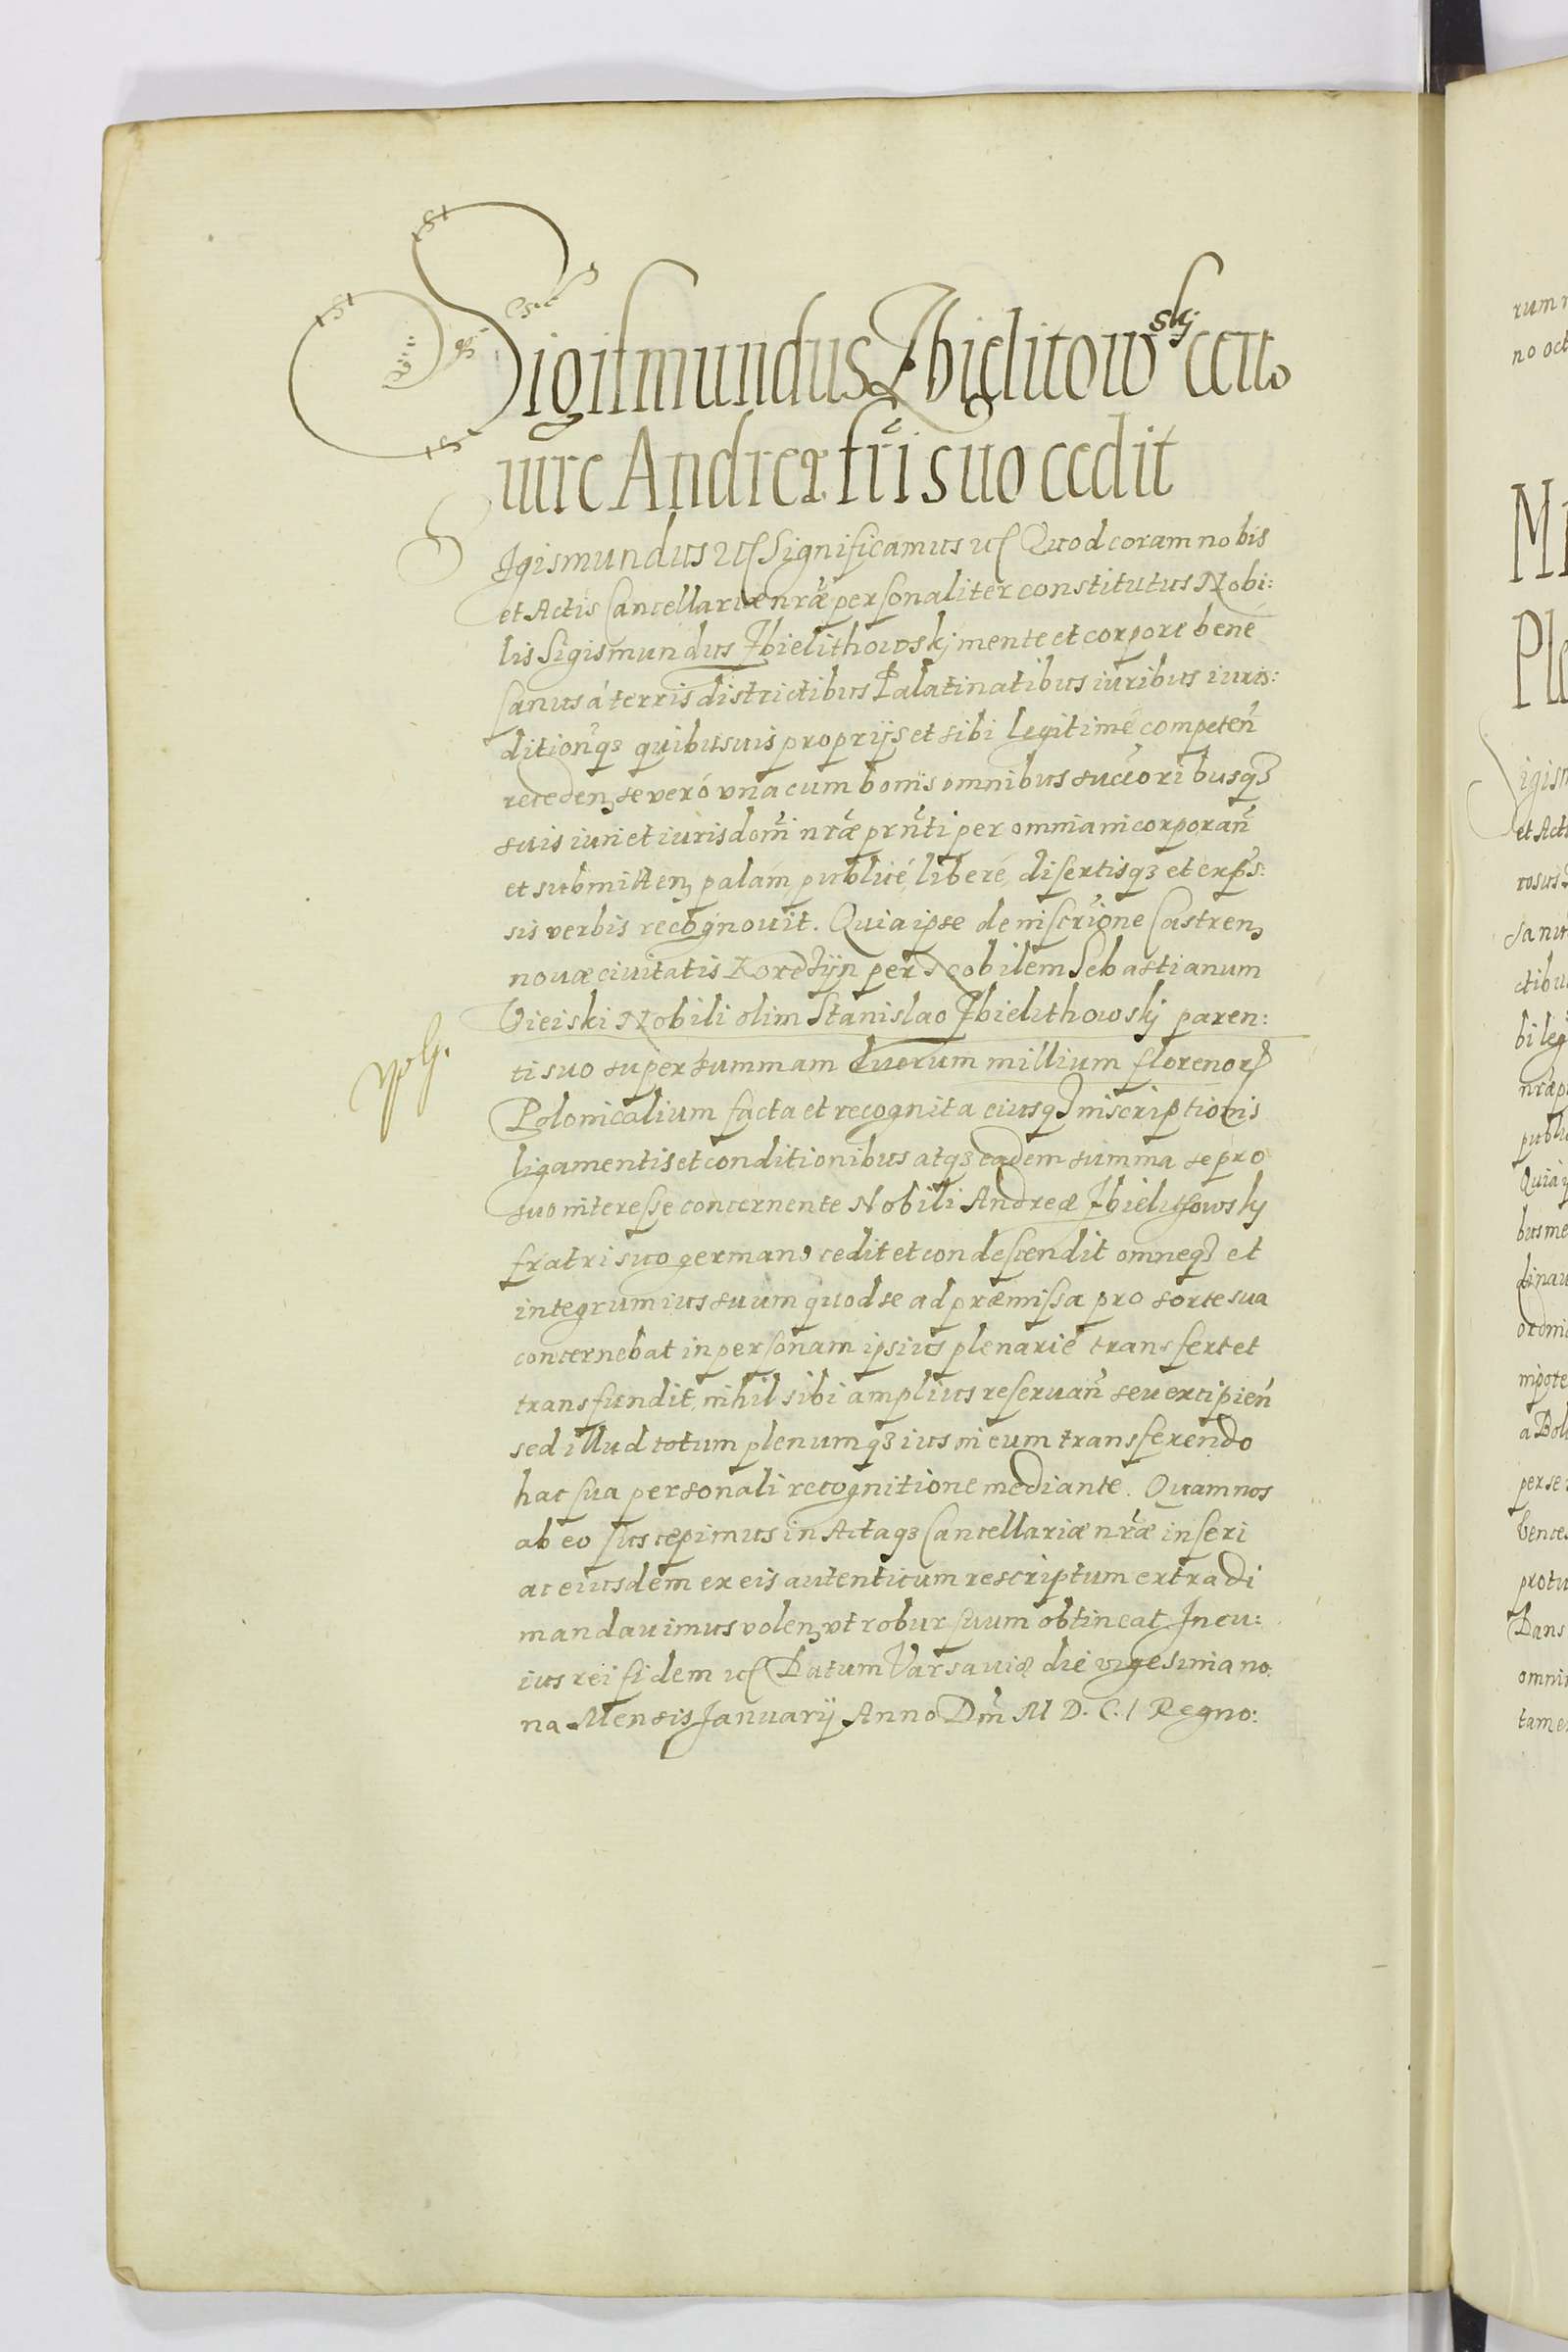 Sigismundus Zbielitowskj certo
iure Andreæ fr̃i suo cedit
Sigismundus etc Significamus etc Quod coram nobis
et Actis Cancellariæ nr̃æ personaliter constitutus Nobi:
lis Sigismundus Zbielithowskj mente et corpore bené
sanus á terris districtibus Palatinatibus iuribus iuris:
ditionq3 quibusuis proprijs et sibi legitimé competeñ
receden3 se veró vna cum bonis omnibus succoribusq3
suis iuri et iurisdoñi nr̃æ prñti per omnia incorporañ
et submitten3 palám, publicé, liberé, disertisq3 et exps̃:
sis verbis recognouit. Quia ipse de inscri̇one Castren3
nouæ ciuitatis Korczijn per Nobilem Sebastianum
Vieiski Nobili olim Stanislao Zbielithowskj paren:
ti suo super summam duorum millium florenor̃
Polonicalium facta et recognita eiusq3 inscriptionis
ligamentis et conditionibus atq3 eadem summa se pro
suo interesse concernente Nobili Andreæ Zbielithowskj
fratri suo germano cedit et condescendit omneq3 et
integrum ius suum quod se ad præmissa pro sorte sua
concernebat in personam ipsius plenarié transfert et
transfundit, nihil sibi amplius reseruañ seu excipieñ
sed illud totum plenumq3 ius in eum transferendo
hac sua personali recognitione mediante. Quam nos
ab eo suscepimus in Actaq3 Cancellariæ nr̃æ inseri
ac eiusdem ex eis autenticum rescriptum extradi
mandauimus volen3 vt robur suum obtineat In cu:
ius rei fidem etc Datum Varsauiæ die vigesima no:
na Mensis Januarij Anno Dñi M D. C. I Regno: